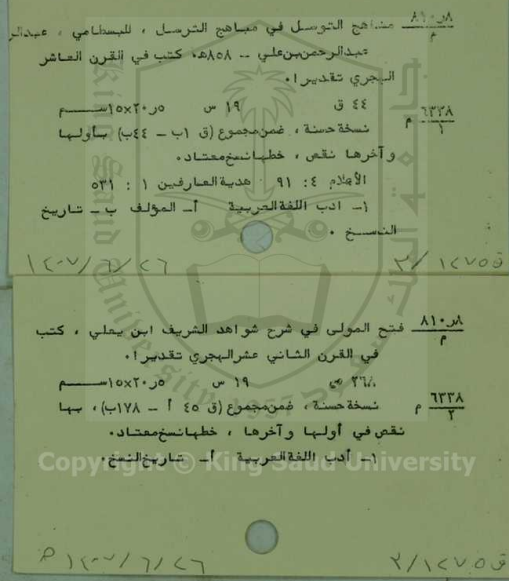 ٨١٠٫٨
م
مناهج التوسل في مباهج الترسل ، للبسطامي ، عبدالر
عبدالرحمن بن علي -- ٨٥٨هـ. كتب في القرن العاشر
الهجري تقديرا.
٤٤ ق ١٩ س ٢٠٫٥×١٥ســم
٦٣٣٨ م
١
نسخة حسنة ، ضمن مجموع (ق ١ب – ٤٤ب) بأولها
وآخرها نقص ، خطها نسخ معتاد.
الأعلام ٤: ٩١ هدية العارفين ١ : ٥٣١
١- ادب اللغة العربية أ- المؤلف ب- تاريخ
النسخ .
ف ١٤٧٥/٢
١٤٠٧/٦/٢٦
٨١٠٫٨
م
فتح المولى في شرح شواهد الشريف ابن يعلي ، كتب
في القرن الثاني عشر الهجري تقديرا.
١٩ س ٢٠٫٥×١٥ســم
٦٣٣٨ م
٢
نسخة حسنة ، ضمن مجموع (ق ٤٥ أ – ١٧٨ب) ، بها
نقص في أولها وآخرها ، خطها نسخ معتاد.
١- أدب اللغة العربية أ- تاريخ النسخ.
ف ١٤٧٥/٢
١٤٠٧/٦/٢٦ هـ
Copyright © King Saud University
King Saud University
1957